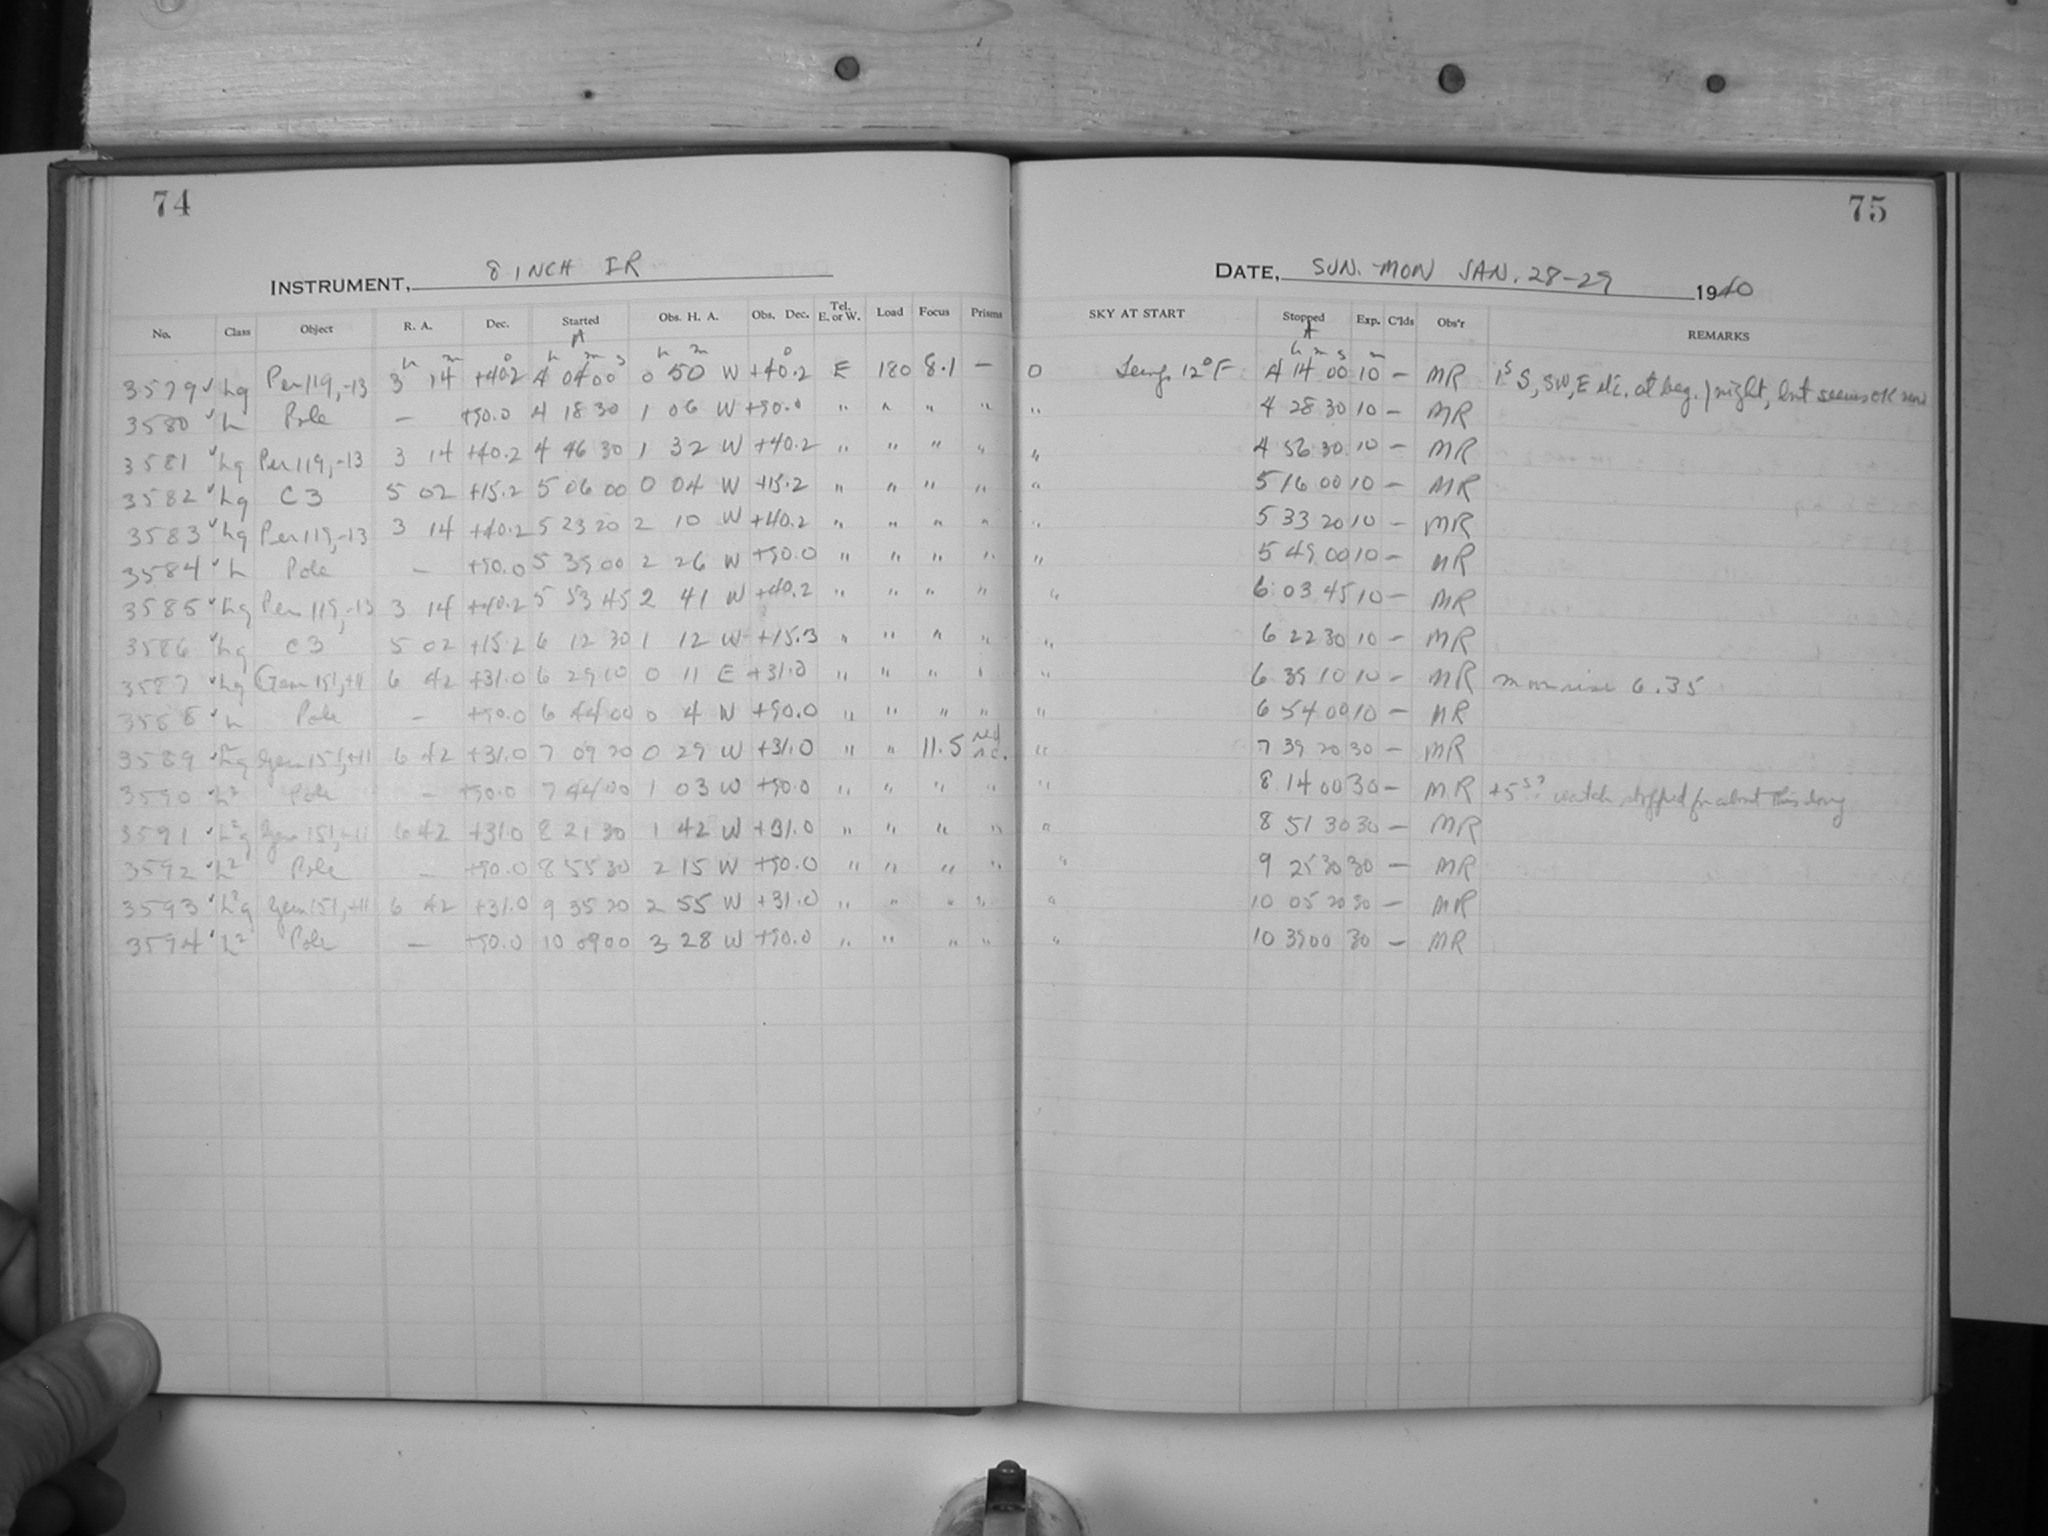 74
75
INSTRUMENT, 8 INCH IR
DATE, SUN.-MON JAN. 28-29 1940
No. Class Object R. A. Dec. Started Obs. H. A. Obs. Dec. Tel. E. or W. Load Focus Prisms SKY AT START Stopped Exp. C'lds Obs'r REMARKS
A A
h m o h m s h m o h m s m
3579 ✓ Lg Per 119,-13 3 14 +40.2 4 04 00 0 50 W +40.2 E 180 8.1 — 0 Temp 12°F 4 14 00 10 — MR S, SW, E etc. at beg. / night, but seems OK now
3580 ✓ L Pole — +90.0 4 18 30 1 06 W +90.0 " " " " " 4 28 30 10 — MR
3581 ✓ Lg Per 119,-13 3 14 +40.2 4 46 30 1 32 W +40.2 " " " " " 4 56 30 10 — MR
3582 ✓ Lg C3 5 02 +15.2 5 06 00 0 04 W +15.2 " " " " " 5 16 00 10 — MR
3583 ✓ Lg Per 119,-13 3 14 +40.2 5 23 20 2 10 W +40.2 " " " " " 5 33 20 10 — MR
3584 ✓ L Pole — +90.0 5 39 00 2 26 W +90.0 " " " " " 5 49 00 10 — MR
3585 ✓ Lg Per 119,-13 3 14 +40.2 5 53 45 2 41 W +40.2 " " " " " 6 03 45 10 — MR
3586 ✓ Lg C3 5 02 +15.2 6 12 30 1 12 W +15.3 " " " " " 6 22 30 10 — MR
3587 ✓ Lg Gem 151,+11 6 42 +31.0 6 29 10 0 11 E +31.0 " " " " " 6 39 10 10 — MR moonrise 6.35
3588 ✓ L Pole — +90.0 6 44 00 0 4 W +90.0 " " " " " 6 54 00 10 — MR
3589 ✓ L²g Gem 151,+11 6 42 +31.0 7 09 20 0 29 W +31.0 " " 11.5 red " 7 39 20 30 — MR
3590 ✓ L² Pole — +90.0 7 44 00 1 03 W +90.0 " " " " " 8 14 00 30 — MR +5 s? watch stopped for about this long
3591 ✓ L²g Gem 151,+11 6 42 +31.0 8 21 30 1 42 W +31.0 " " " " " 8 51 30 30 — MR
3592 ✓ L² Pole — +90.0 8 55 30 2 15 W +90.0 " " " " " 9 25 30 30 — MR
3593 ✓ L²g Gem 151,+11 6 42 +31.0 9 35 20 2 55 W +31.0 " " " " " 10 05 20 30 — MR
3594 ✓ L² Pole — +90.0 10 09 00 3 28 W +90.0 " " " " " 10 39 00 30 — MR